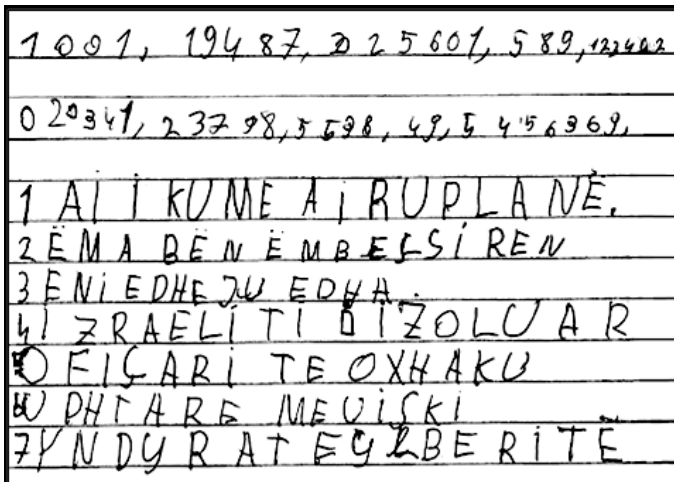 1001, 19487, 325601, 589, 123402
020341, 23798, 5598, 49, 5 456969,
1 AI I KUME AIRUPLANË.
2 ËMA BËN ËMBELSIREN
3 ENI EDHE JU EDHA.
4 IZRAELITI I IZOLUAR
OFIÇARI TE OXHAKU
U PHTARE ME VISKI
7 YNDYRAT E GJLBERITË